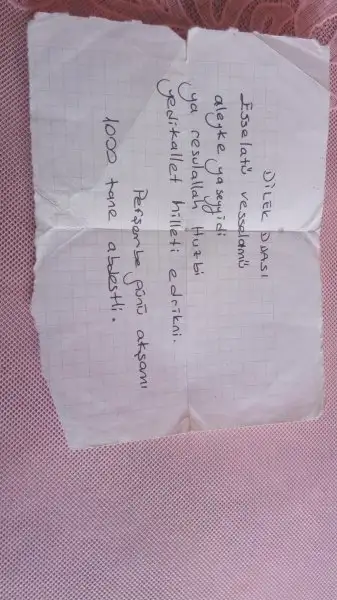 DİLEK DUASI
Esselatü vesselamü
aleyke ya seyyidi
ya resulallah Huzbi
yedikallet hilleti edrikni.
Perşembe günü akşamı
1000 tane abdestli.